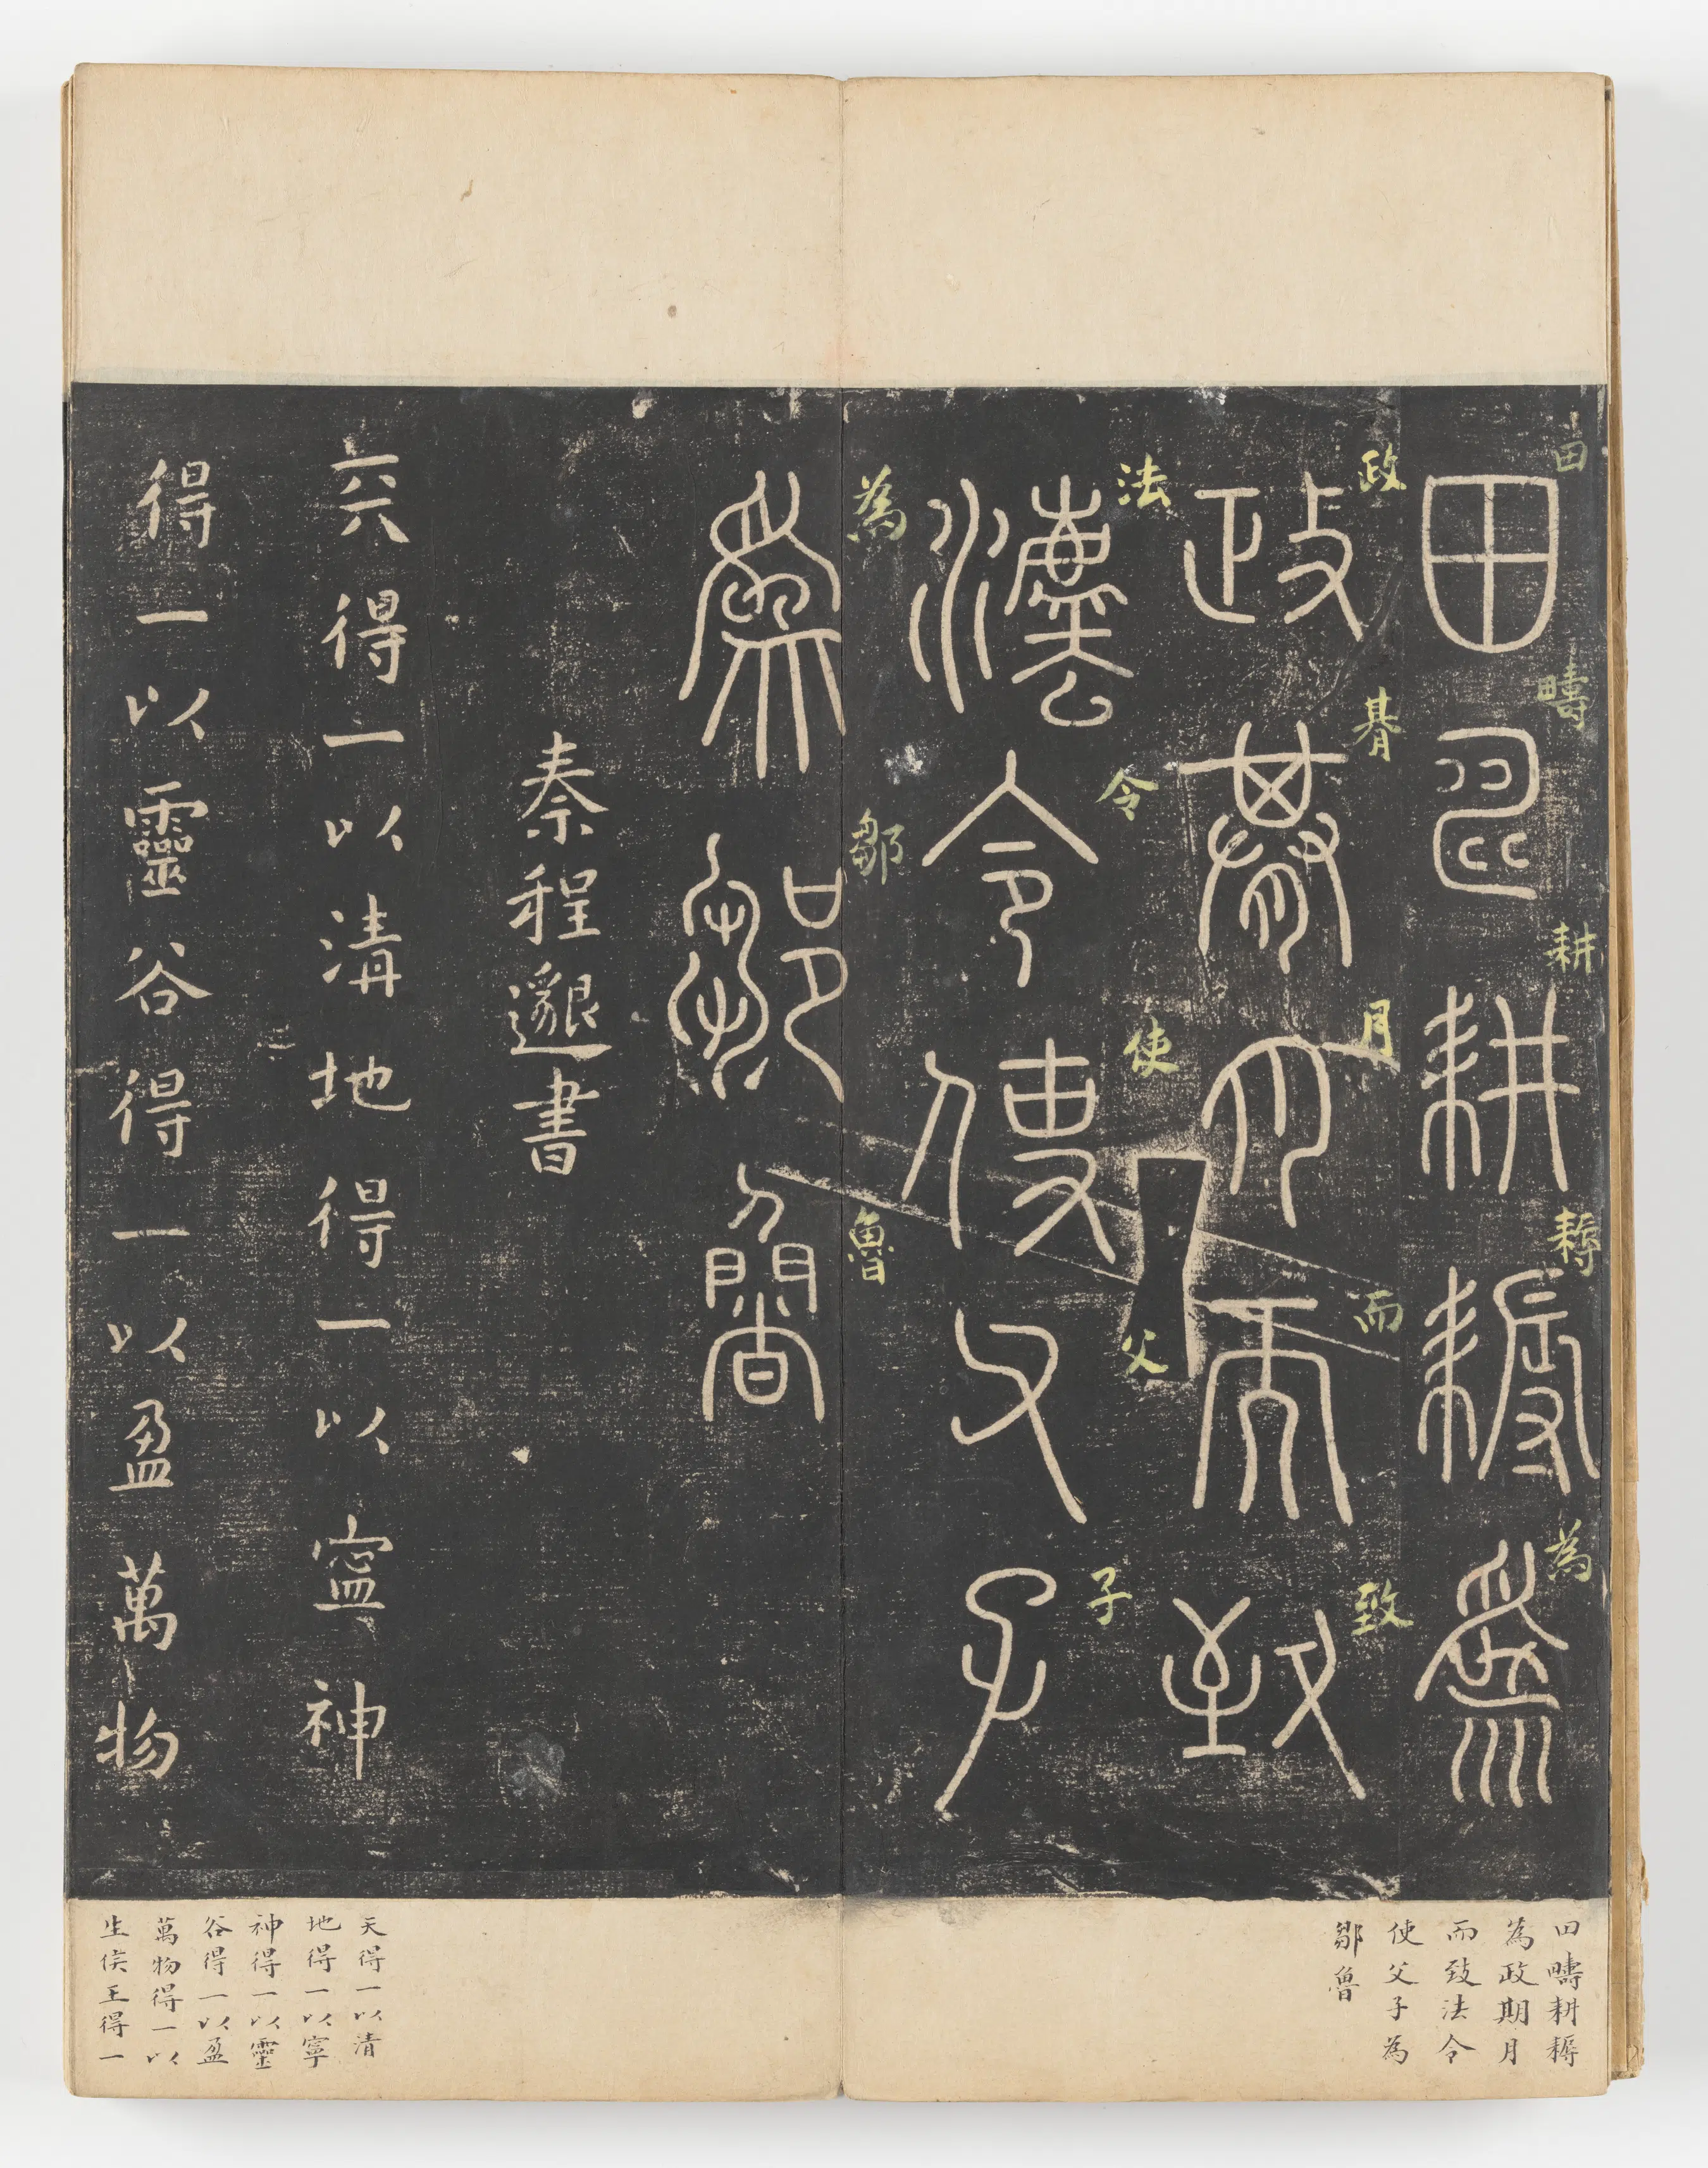 田疇耕耨為
政朞月而致
灋令使父子
為鄒魯
秦程邈書
天得一以清地得一以寍神
得一以靈谷得一以盈萬物
田
疇
耕
耨
為
政
朞
月
而
致
法
令
使
父
子
為
鄒
魯
田疇耕耨
為政期月
而致法令
使父子為
鄒魯
天得一以清
地得一以寧
神得一以靈
谷得一以盈
萬物得一以
生侯王得一